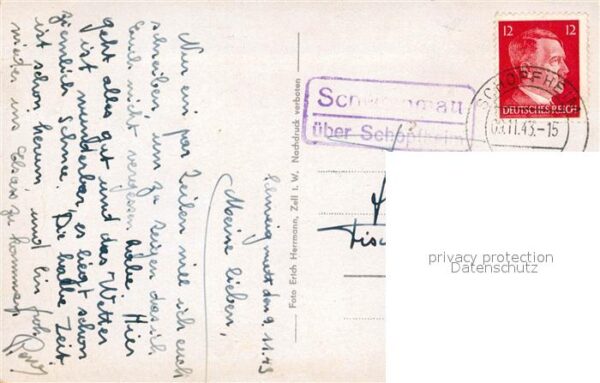 den 9.11.43
Meine lieben,
Nur ein par Zeilen will ich euch
schreiben, um zu zeigen das ich
Euch nicht vergessen habe. Hier
geht alles gut und das Wetter
ist wunderbar, es liegt schon
ziemlich Schnee. Die halbe Zeit
ist schon herum, und bin froh
wieder ins Elsass zu kommen.
Foto Erich Herrmann, Zell i. W. Nachdruck verboten
über Schopfheim
SCHOPFHE
09.11.43.-15
12 12
DEUTSCHES REICH
privacy protection
Datenschutz